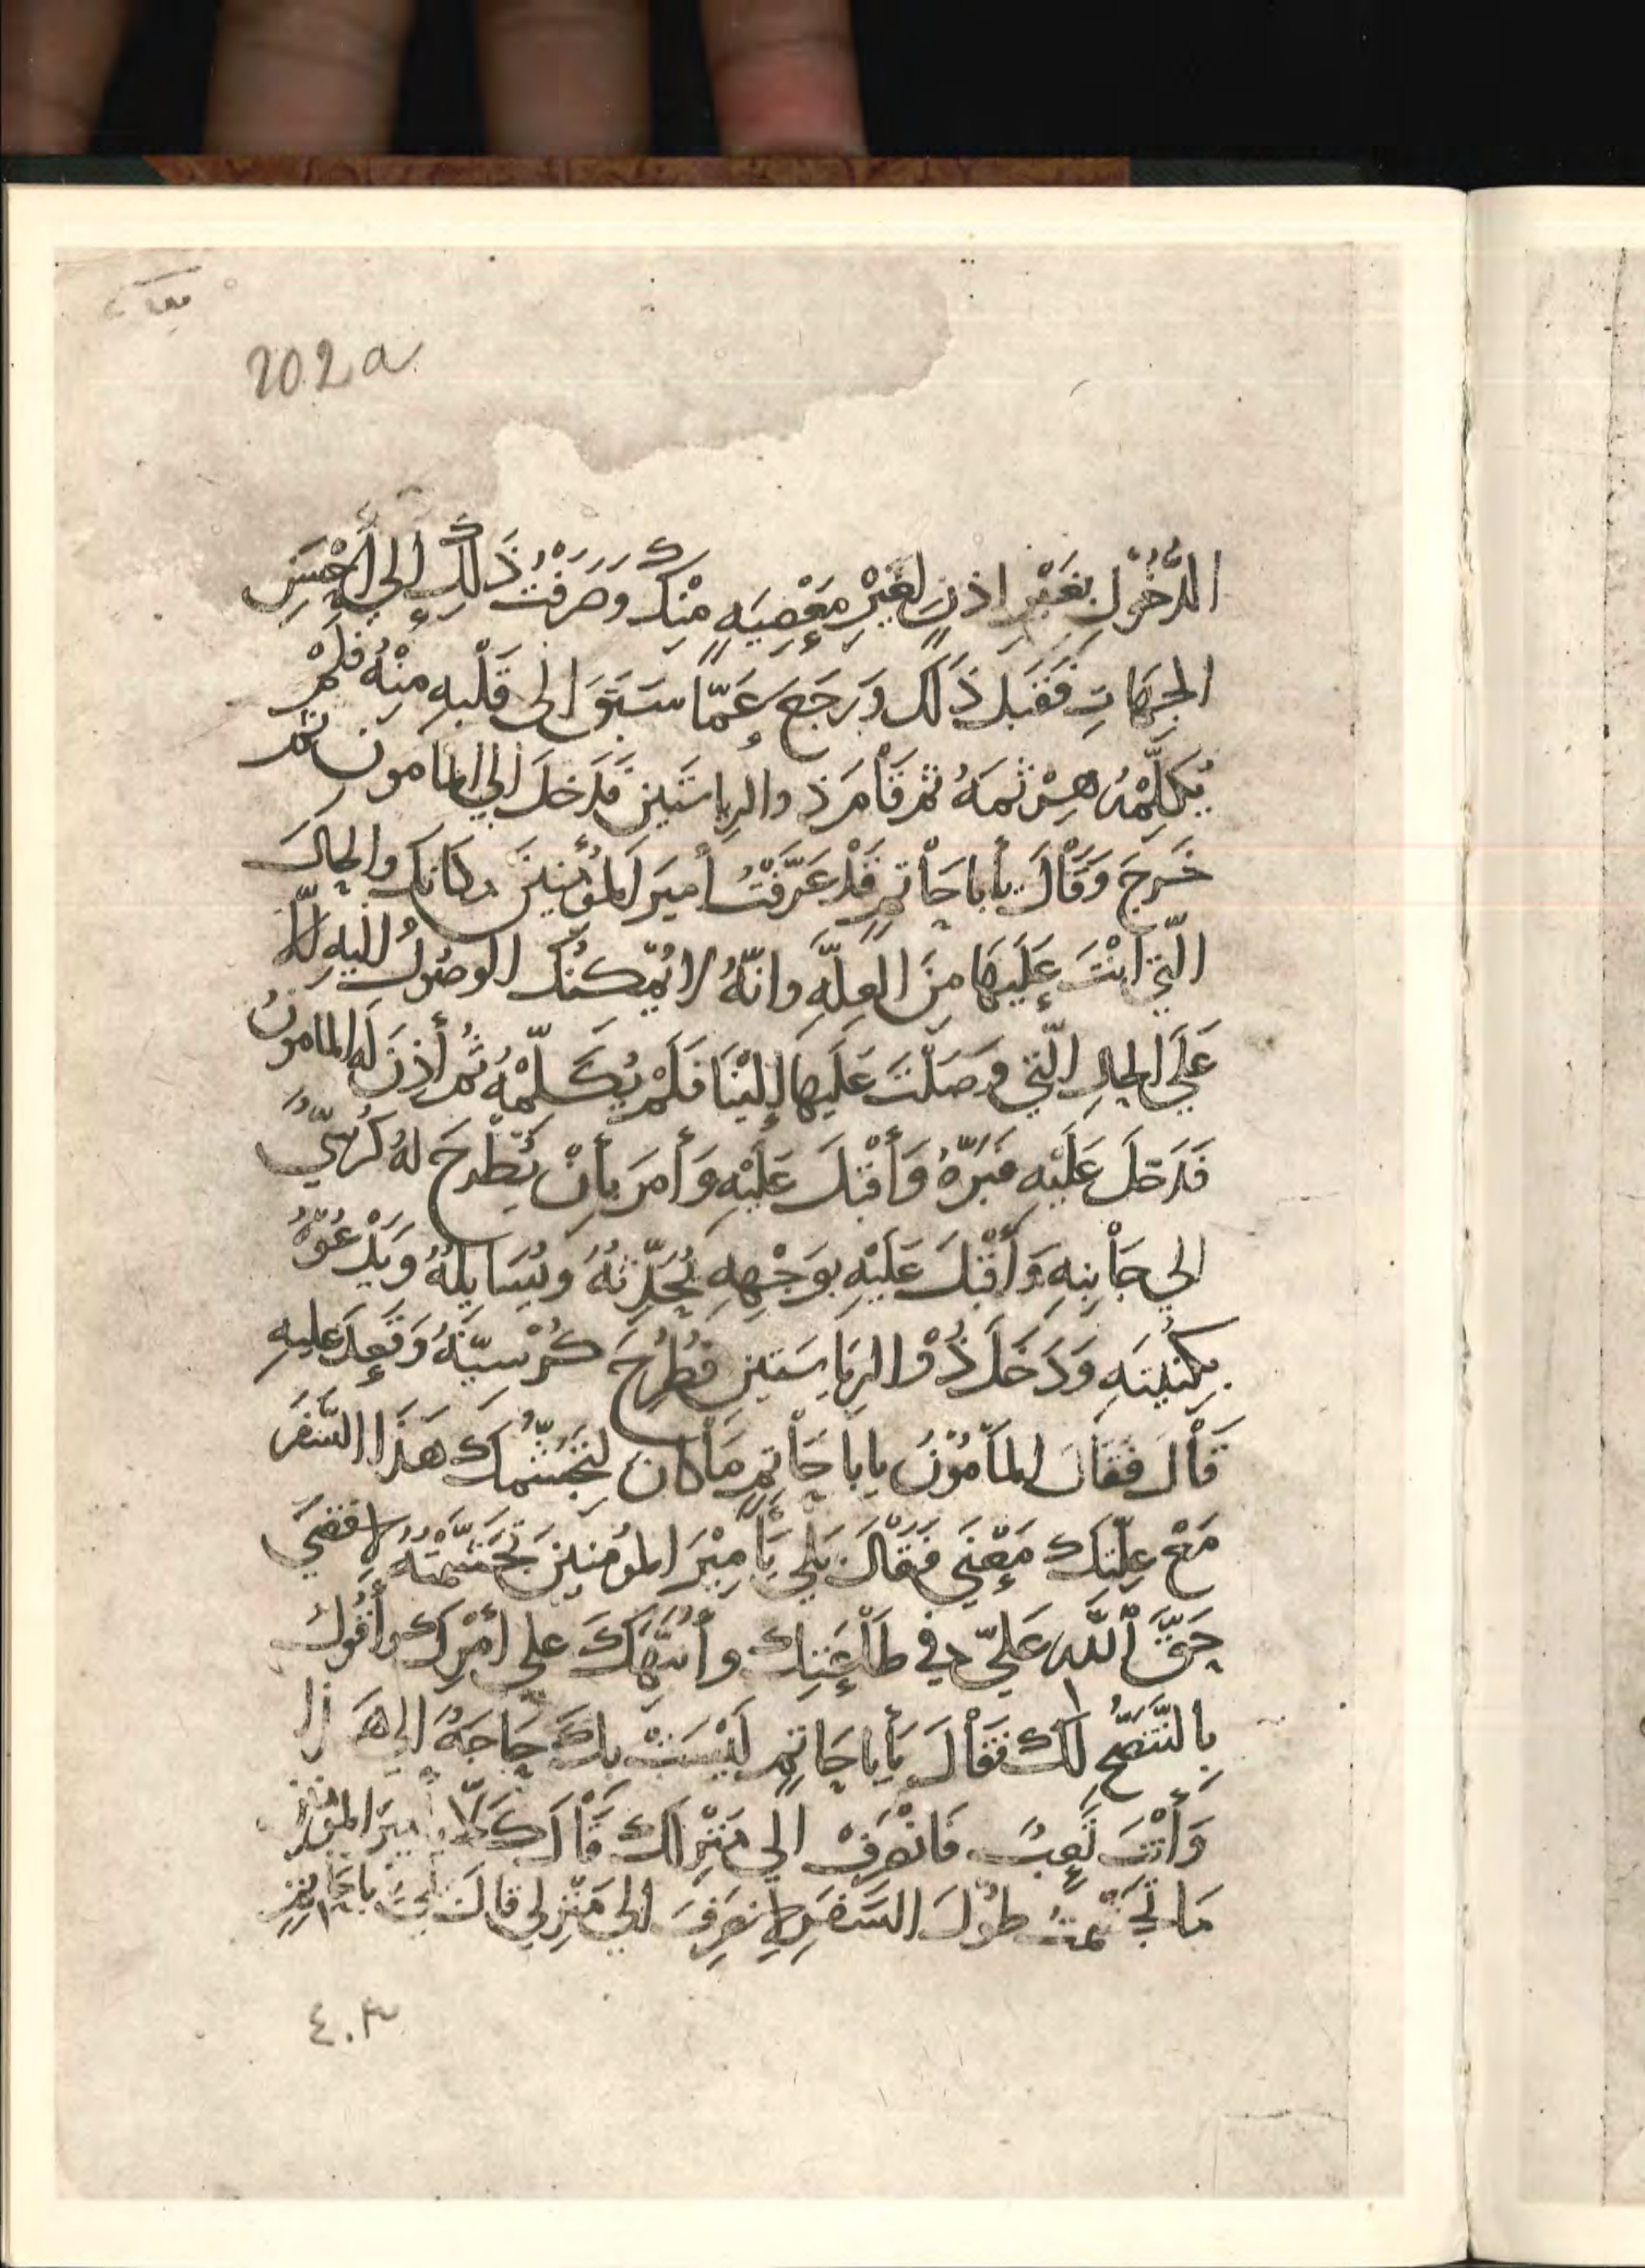 202a
الدُّخُوْلِ بِغَيْرِ اِذنٍ لِغَيْرِ مَعْصِيَهٍ مِنْكَ وصَرَفْتُ ذَلِكَ إِلي أَحْسَنِ
الجِهَاتِ فَقَبِلَ ذَلَكَ وَرَجَعَ عَمّا سَبَقَ اِلى قَلْبِهِ مِنْهُ فَلَمْ
يُكَلِّمْهُ هِرْثَمَهُ ثم قَاْمَ ذوالرِياستَين فَدَخلَ اِلي المامون ثم
خَرجَ وَقَاْلَ يأبا حَاْتمٍ قَدْ عَرَّفْتُ أميَر المؤْمِنينَ مكَانكَ والحالَ
الّتي اَنْتَ عَلَيهَا مِنَ العِلّهِ وانّهُ لا يُمْكنُك الوصُولُ اليهِ الّا
عَلَي الحالِ الّتي وَصَلْتَ عَلَيهَا إلَيْنَا فَلَمْ يُكَلِّمْهُ ثُم أَذِنَ لَه المامونُ
فَدَخلَ عَلَيْهِ فَبَرّهُ وَأَقْبَلَ عَلَيْهِ وَأَمَرَ بأَنْ يُطْرحَ لهُ كُرْسِيٌّ
الي جَاْنِبِهِ وَأَقْبَلَ عَلَيْهِ بوَجْهِهِ يُحَدِّثهُ ويُسَايِلهُ وَيَدْعُوْهُ
بِكُنيَتهِ وَدَخَلَ ذُوْ الرِيَاسَتين فَطُرِحَ كُرْسيّهُ وَقَعدَ عَليهِ
قَاْلَ فَقَاْلَ المَاْمُوْنُ يابَاْ حَاْتِمٍ مَاْكان لِتجَشُّمك هَذَا السَّفَرَ
مَعْ عِلّتكَ مَعْنَي فَقَاْلَ بَلي يَاْ مِيْرَ المؤمنينَ تَجَشَّمْتهُ لاقضيَ
حَقَّ اْللَّهِ عَليّ في طَاْعَتِكَ وأُنَبِّهَكَ علي أَمْرِكَ وأَقُوْلَ
بِالنُّصْحِ لكَ فقَاْلَ يَأبا حَاتِمٍ لَيْسَتْ بِكَ حَاجَهٌ إلى هَذا
وَأَنْتَ تَعِبٌ فَانْصَرِفْ الي مَنْزِلكَ قَاْلَ كَلّا يا ميرَ المؤمنين
مَا تَجَشّمتُ طُوْلَ السَّفَرِ لانصَرِفَ الي مَنْزِلي قالَ بَلي يابا حَاتمٍ
٤٠٣